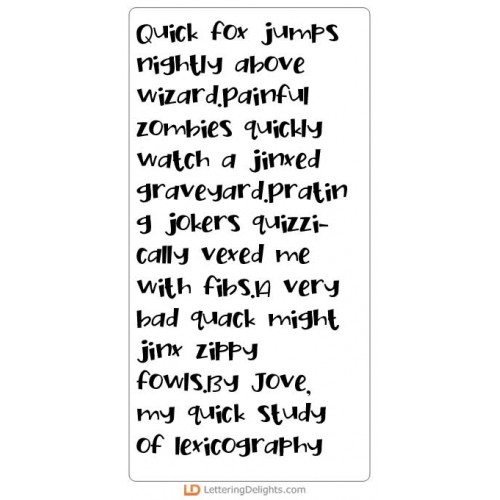 Quick fox jumps
nightly above
wizard.Painful
zombies quickly
watch a jinxed
graveyard.Pratin
g jokers quizzi-
cally vexed me
with fibs.A very
bad quack might
jinx zippy
fowls.By Jove,
my quick study
of lexicography
LD LetteringDelights.com